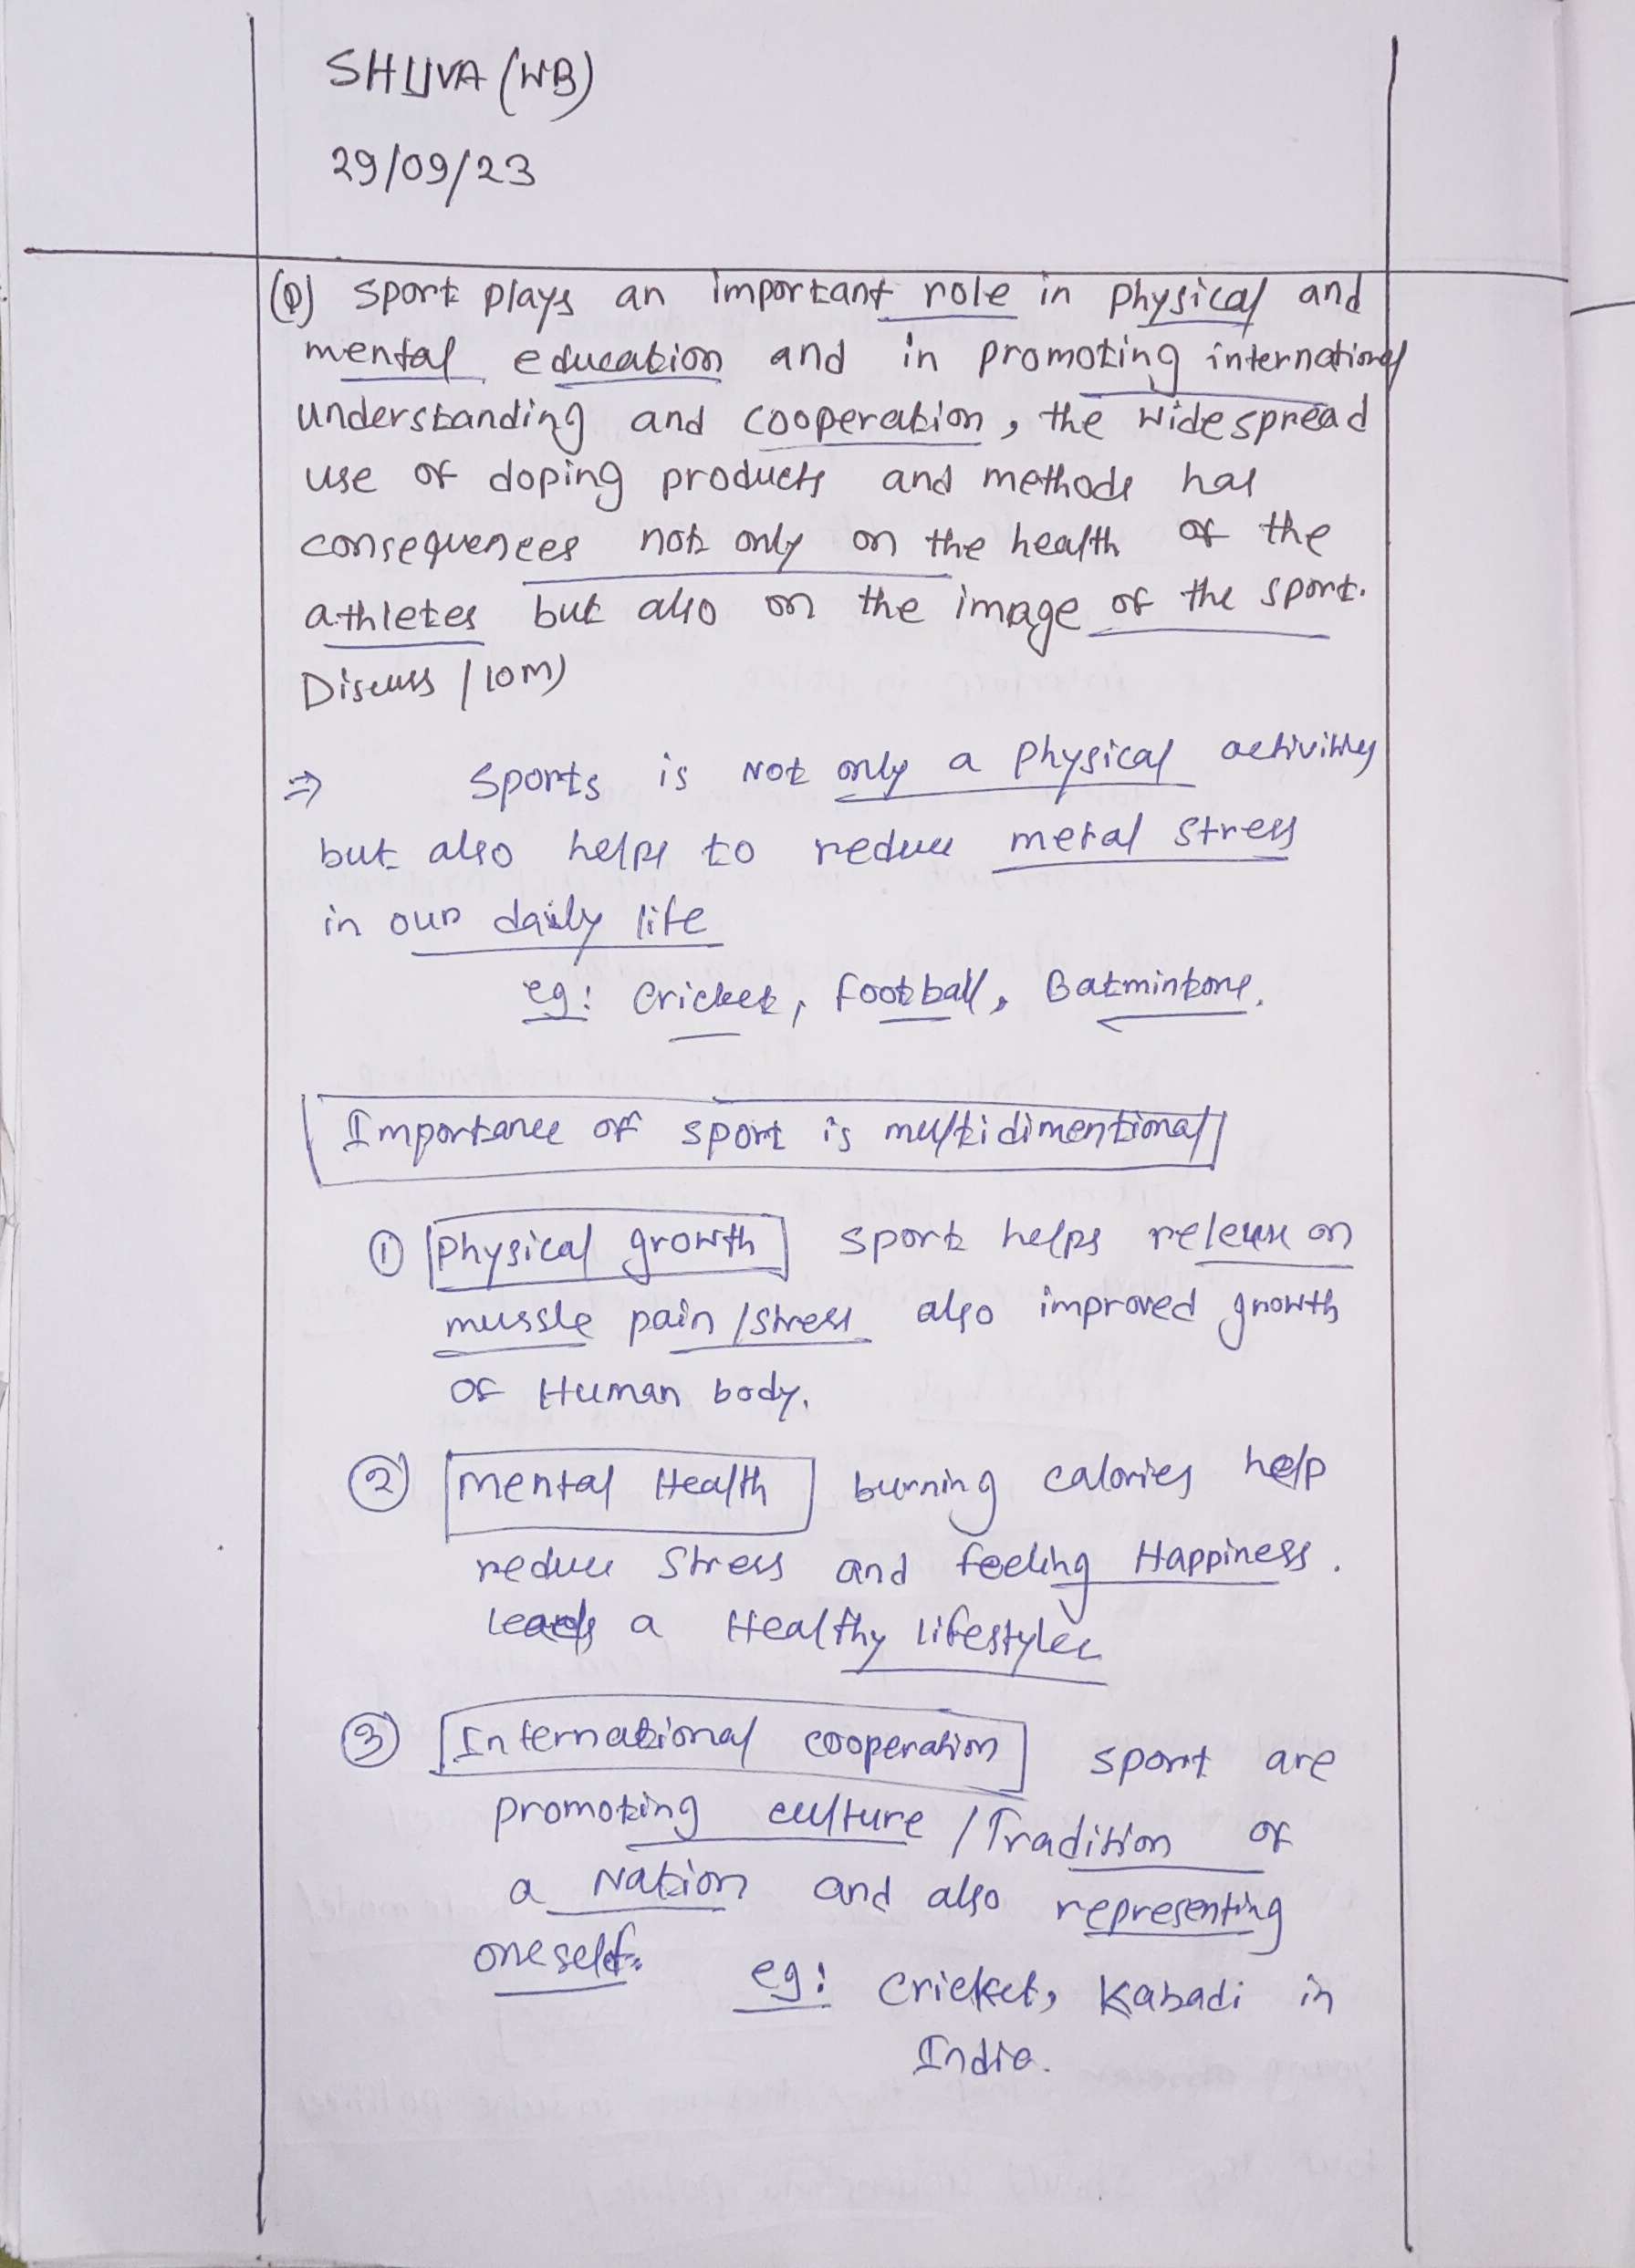 SHUVA (WB)
29/09/23
(Q) Sport plays an important role in physical and
mental education and in promoting international
understanding and cooperation, the widespread
use of doping products and methods has
consequences not only on the health of the
athletes but also on the image of the sport.
Discuss (10M)
⇒ Sports is not only a physical activities
but also helps to reduce metal stress
in our daily life
eg: Cricket, Football, Batmintone.
Importance of sport is multidimentional
① Physical growth Sport helps on
mussle pain / stress also improved growth
of Human body.
② Mental Health burning calories help
reduce stress and feeling Happiness.
leads a Healthy lifestyle
③ International cooperation sport are
promoting culture / Tradition of
a Nation and also representing
oneself.
eg: Cricket, Kabadi in
India.